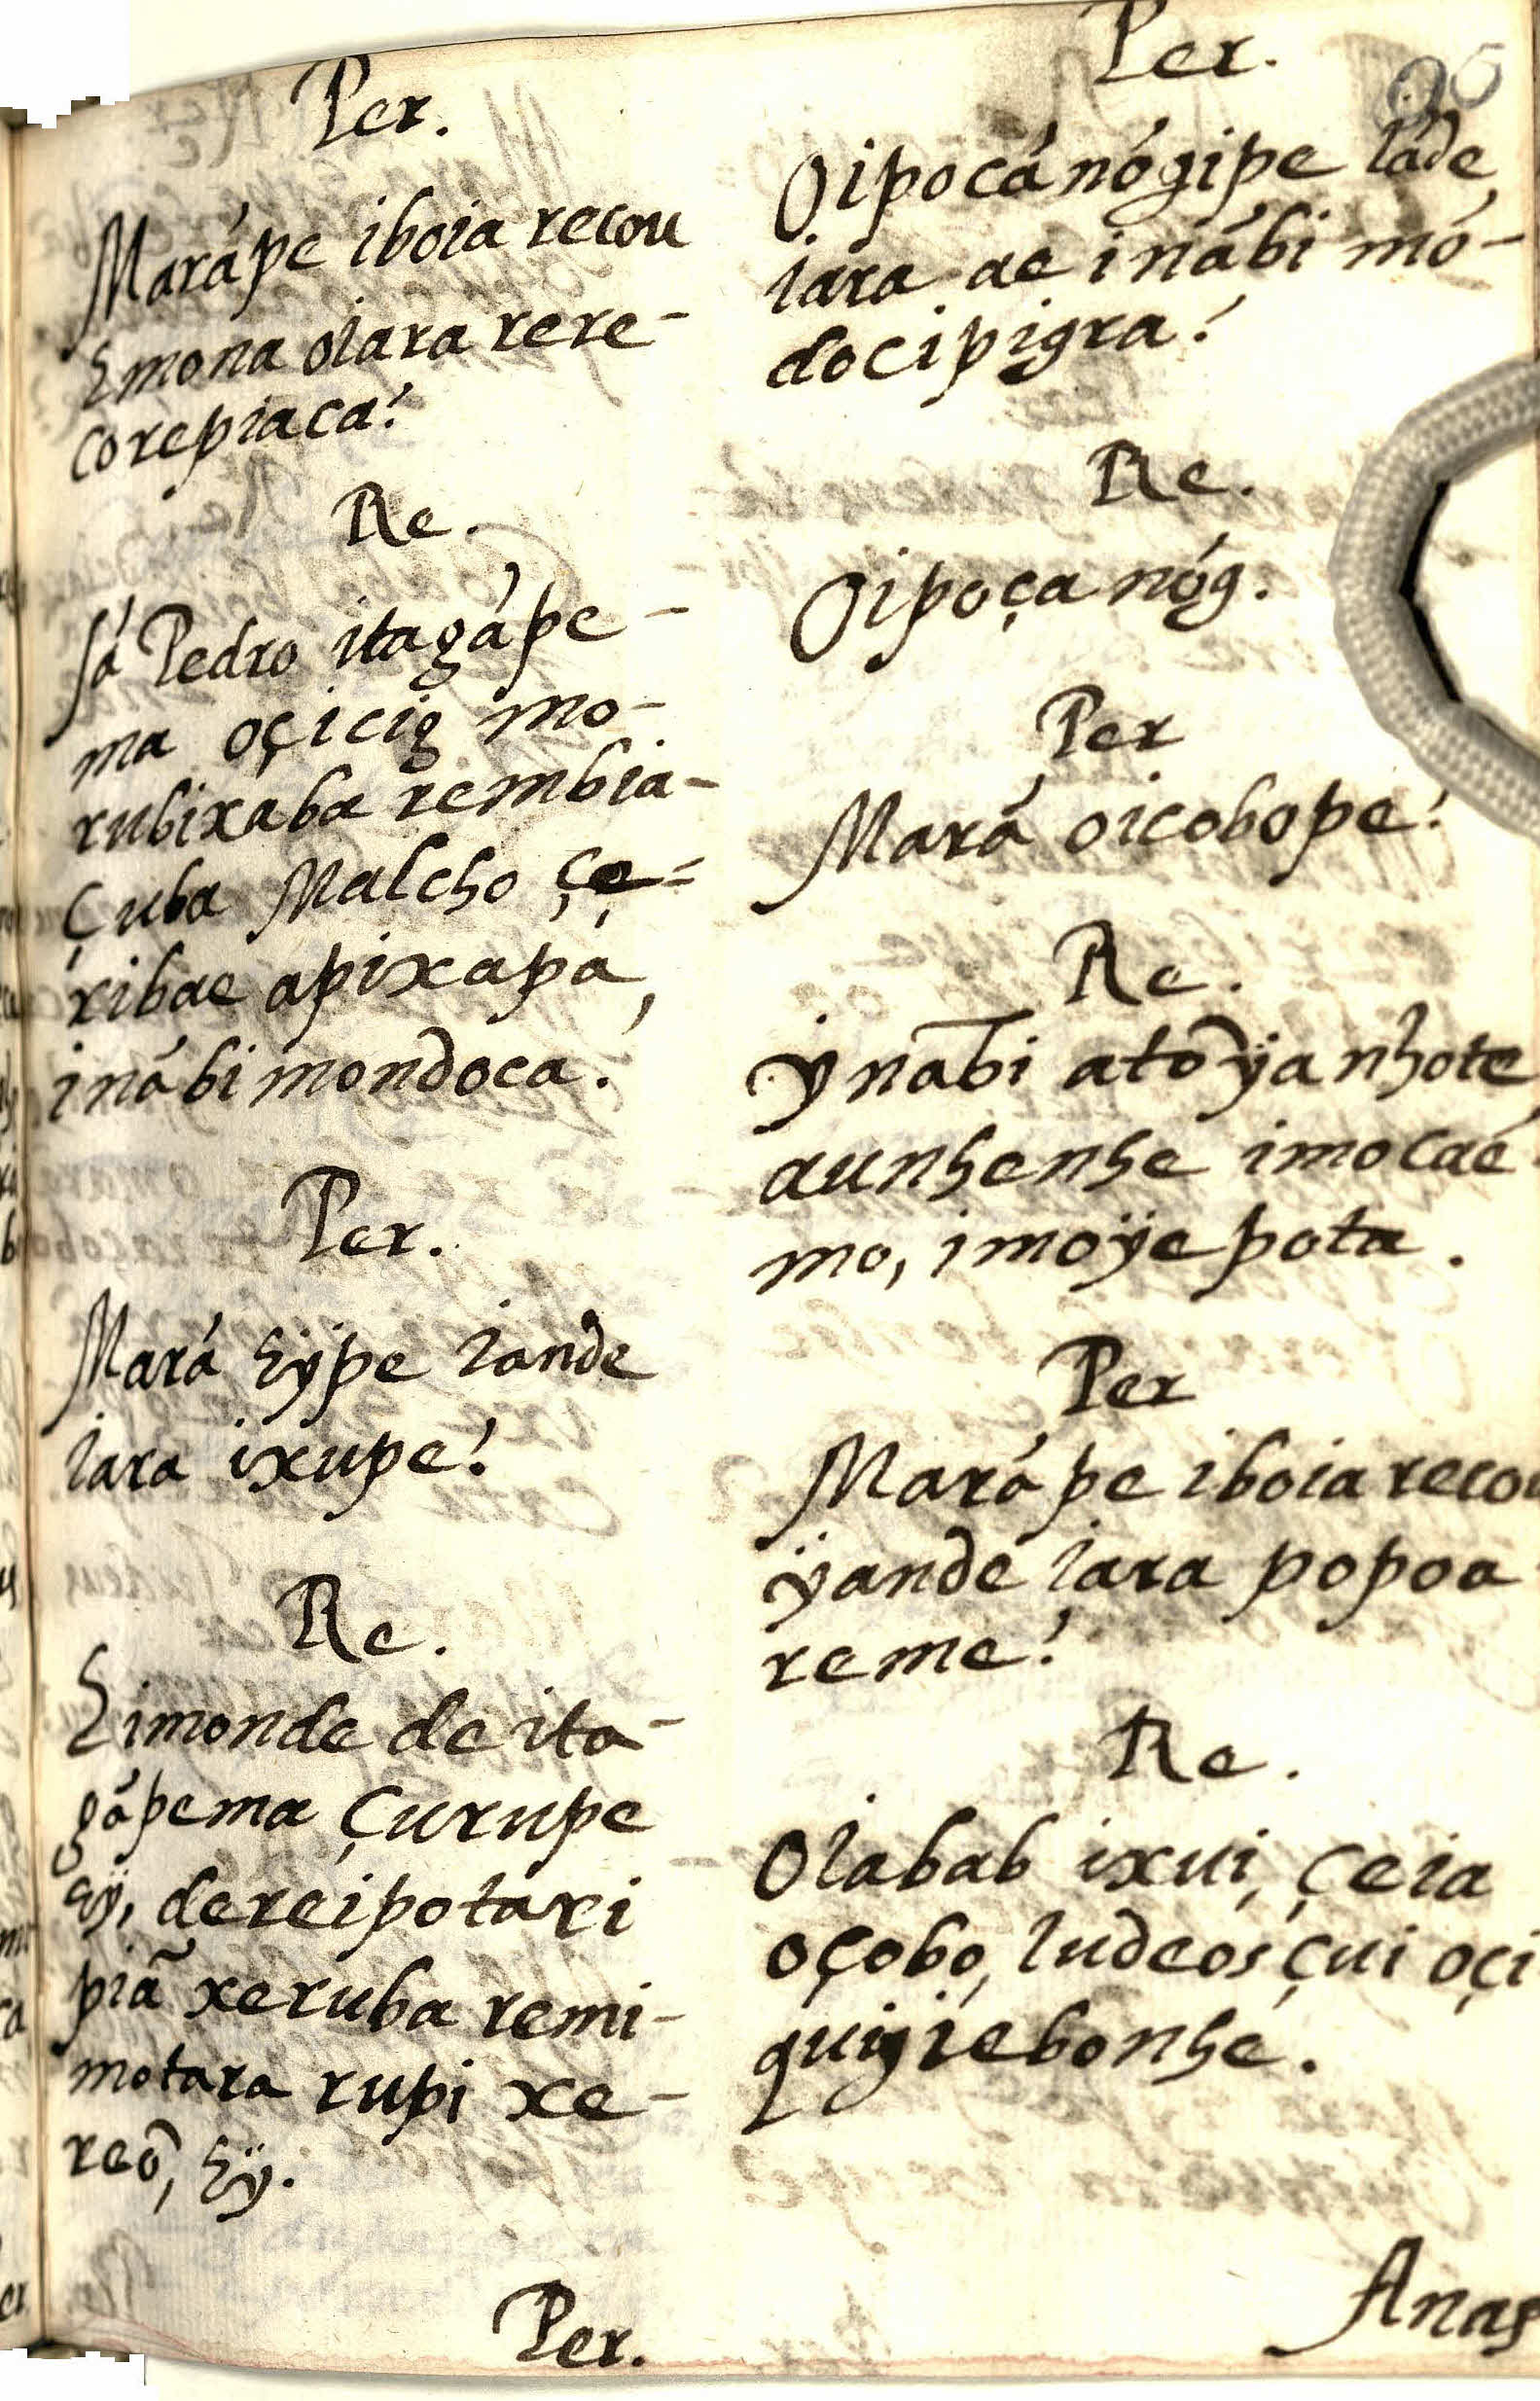 Per.
Marápe iboia recou
Emona oiara rere-
corepiaca?
Re.
Sá Pedro itagápe-
ma oçicig mo-
rubixaba rembia-
çuba Malcho çe=
ribae apixapa,
inábi mondoca.
Per.
Mará hÿpe iande
iara ixupe?
Re.
Eimonde de ita-
gápema çurupe
hÿ, dereipotaxi
piã xeruba remi-
motara rupi xe-
reõ, hÿ.
Per.
Per.
95
Oipocánógipe iãde
iara ae inábi mó-
docipigra?
Re.
Oipoça nóg.
Per
Mará oicobope?
Re.
ÿnãbi atõÿanhote,
aunhenhe imocae
mo, imoÿepota.
Per
Marápe iboia recou
ÿande iara popoa
reme?
Re.
Oiabab ixui, çeia
oçobo, Iudeos çui oçi
quigiebonhe.
Anas